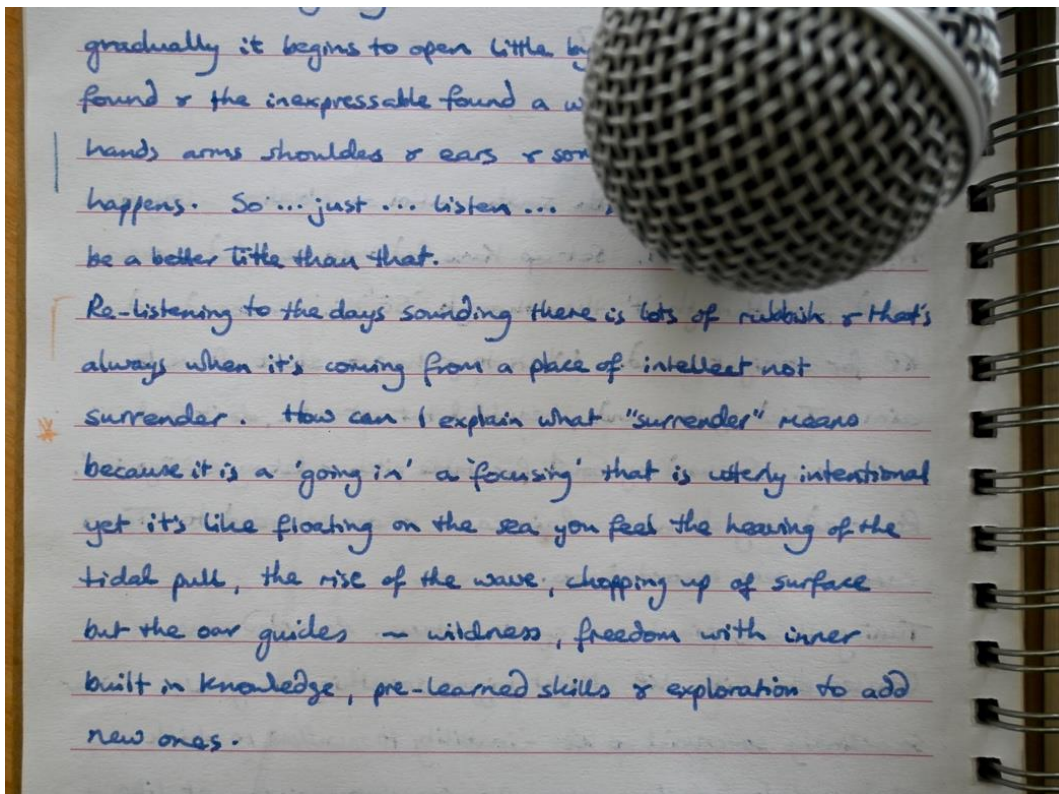 gradually it begins to open little by
found & the inexpressable found a
hands arms shoulders & ears &
happens. So ... just ... listen ...
be a better title than that.
Re-listening to the days sounding there is lots of rubbish & that's
always when it's coming from a place of intellect not
surrender. How can I explain what "surrender" means
because it is a 'going in' a 'focusing' that is utterly intentional
yet it's like floating on the sea you feel the heaving of the
tidal pull, the rise of the wave, chopping up of surface
but the oar guides ~ wildness, freedom with inner
built in knowledge, pre-learned skills & exploration to add
new ones.